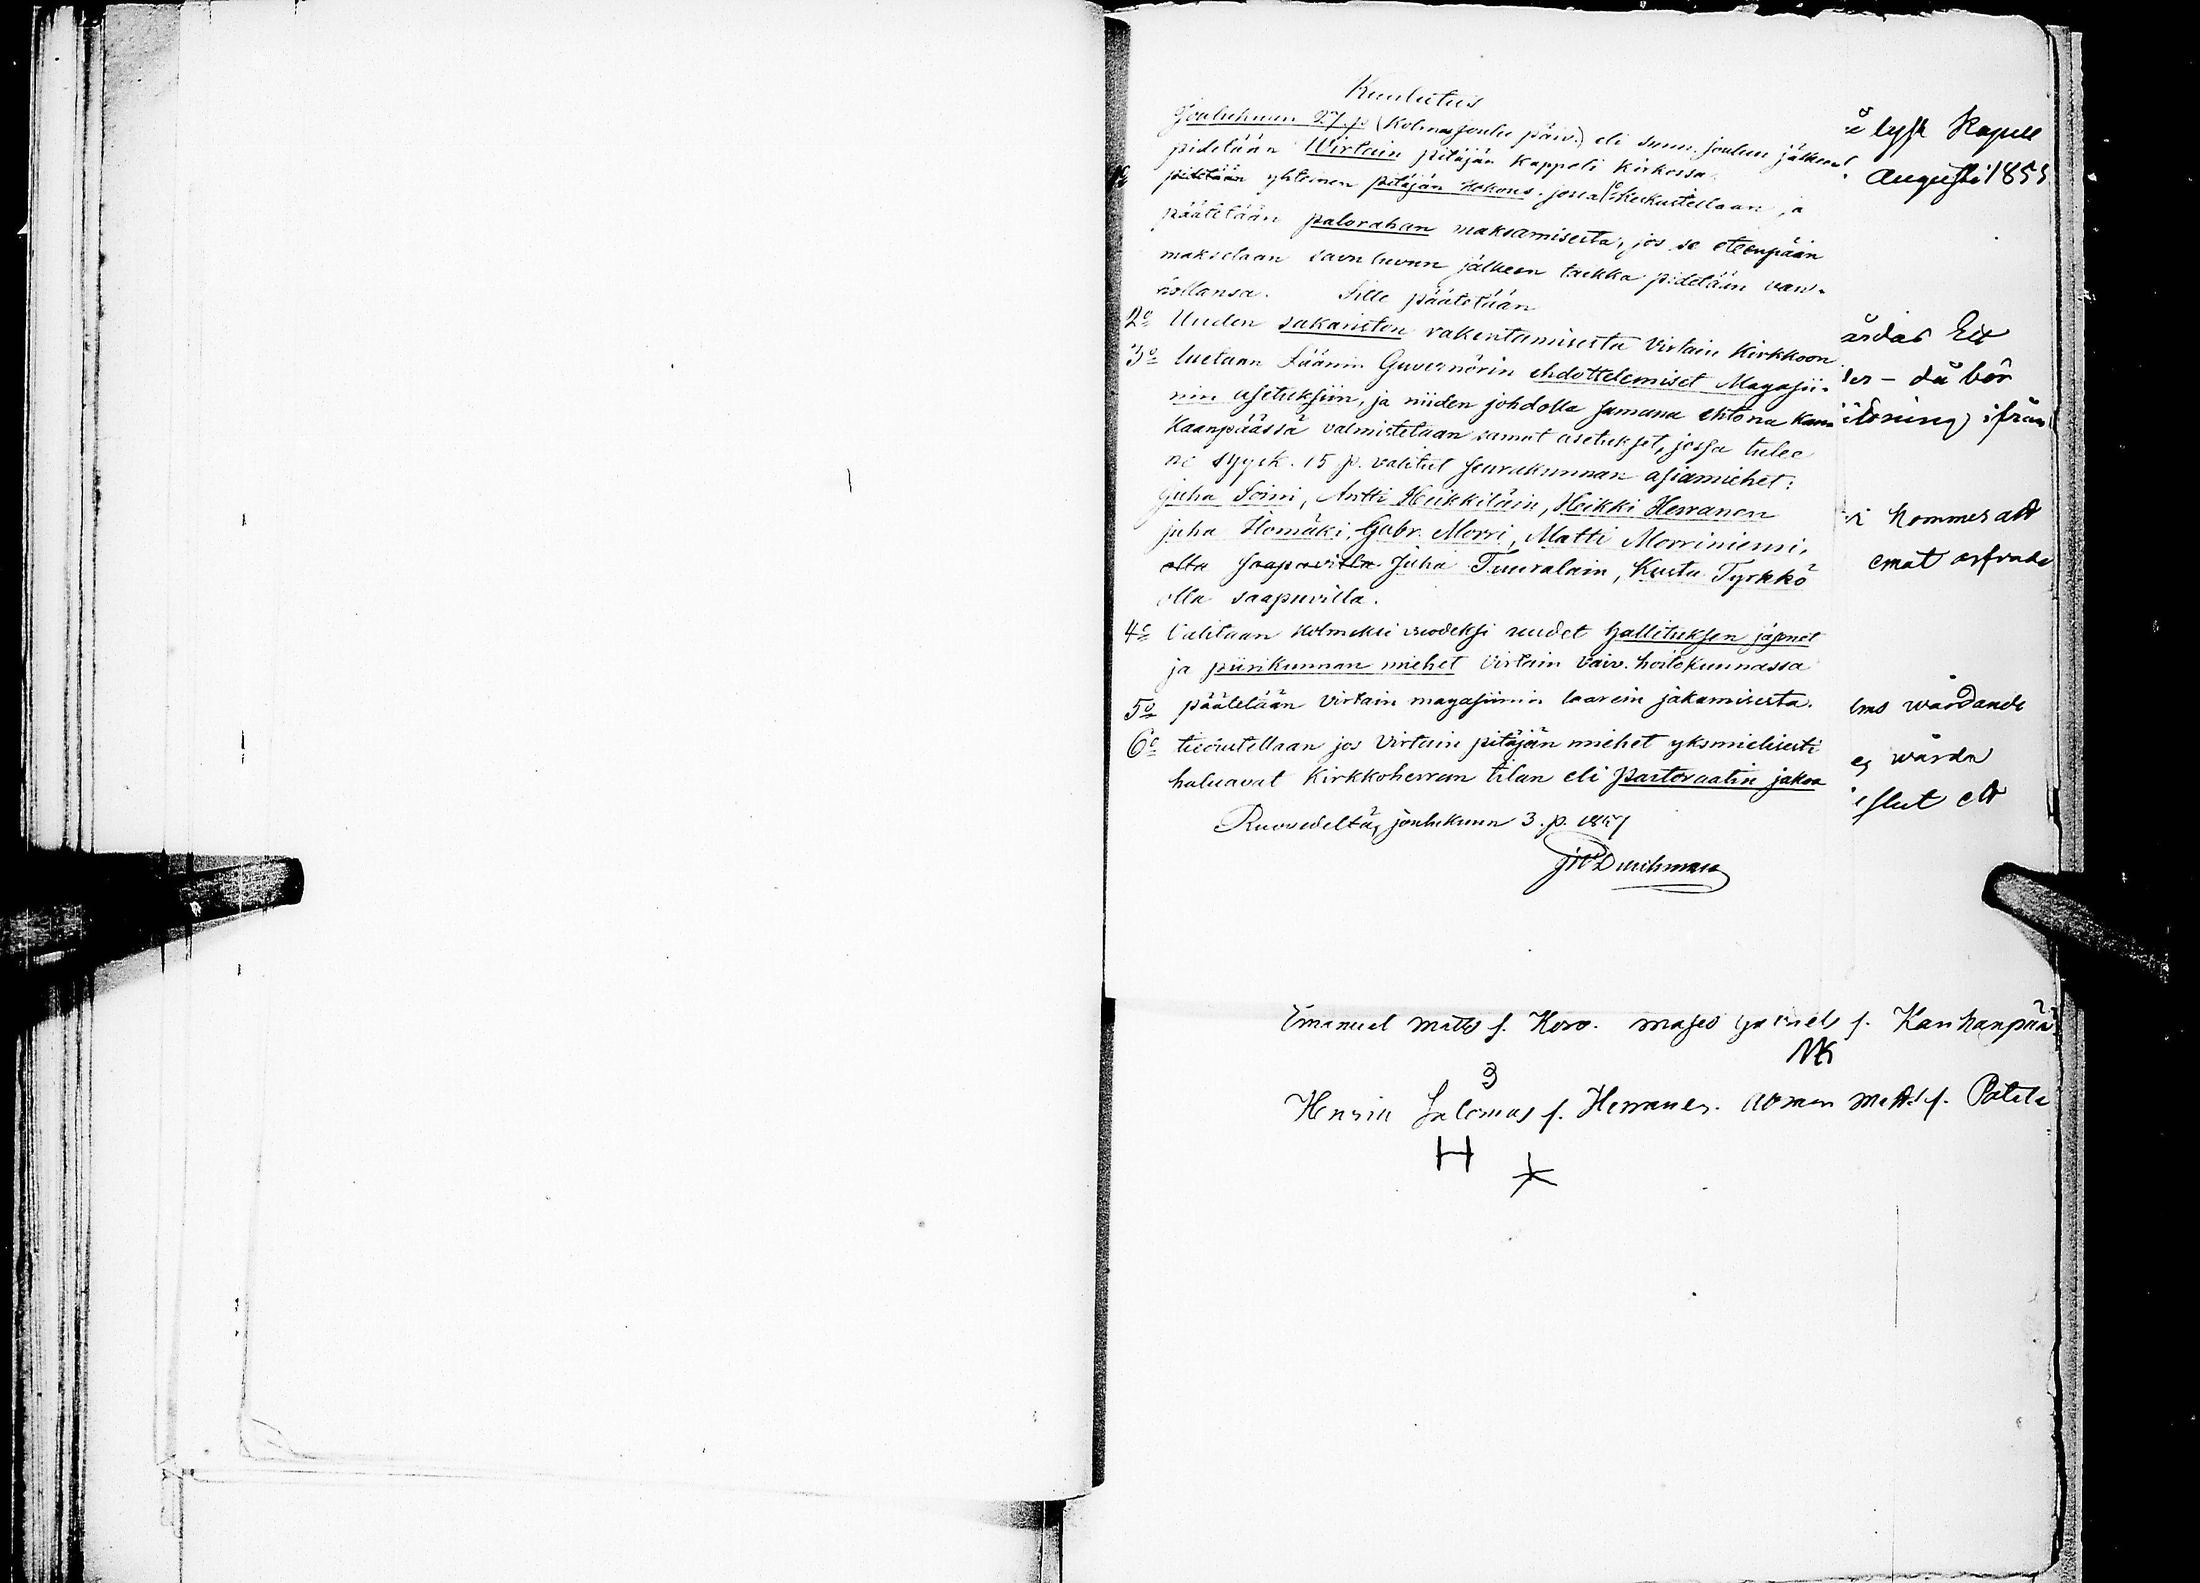 Kuulutus
Joulukuun 27. p. (Kolmas joulu päiv.) eli sunn. joulun jälkeen
pidetään Wirtain pitäjän Kappeli Kirkossa
pidetään yhteinen pitäjän kokous, jossa 1:o Keskustellaan ja
päätetään palorahan maksamisesta, jos se eteenpäin
maksetaan savu luvun jälkeen taikka pidetään van-
hollansa. Sille päätetään
2:o Uuden sakariston rakentamisesta Virtain Kirkkoon
3:o luetaan Läänin Guvernörin ehdottelemiset Magasii-
nin asetuksiin, ja niiden johdolla samana ehtona Kau
Kaanpäässä valmistetaan samat asetukset, jossa tulee
ne syysk. 15 p. valitut seurakunnan asiamiehet:
Juha Soini, Antti Heikkiläin, Heikki Herranen
Juha Ilomäki, Gabr. Morri, Matti Morriniemi,
olla saapuvilla Juha Tuuralain, Kusta Tyrkkö
olla saapuvilla.
4:o Valitaan kolmeksi vuodeksi uudet hallituksen jäsenet
ja piirikunnan miehet Virtain vaiv. hoitokunnassa
5:o päätetään Virtain magasiinin laarein jakamisesta.
6:o tiedustellaan jos Virtain pitäjän miehet yksmielisesti
haluavat Kirkkoherran tilan eli pastoraatin jakoa
Ruovedeltä, joulukuun 3. p. 1857
Durchman
lyst Kapell
Augusti 1855
ärdas Ett
er – då bör
ifrån
kommer att
emot
ens wårdande
wårda
eslut ett
Emanuel Matts s. Kero. Gabriels s. Kauhanpää
MK
3
Henric Salomos s. Herranen. Matts s. Patala
H